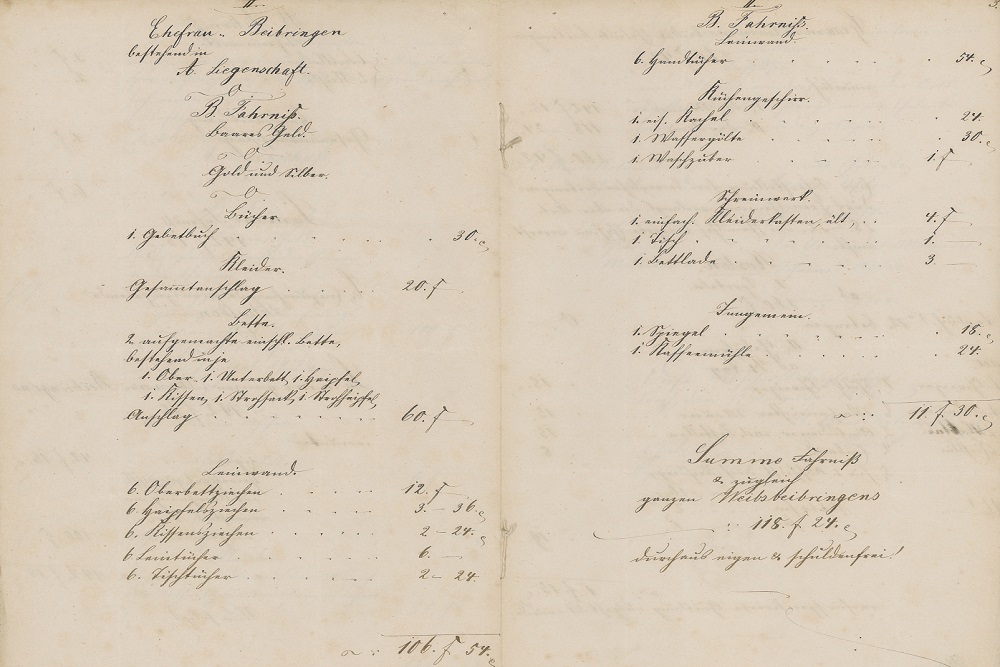 II.
Ehefrau - Beibringen
bestehend in
A. Liegenschaft.
O
B. Fahrniß.
Baares Geld.
O
Gold und Silber.
O
Bücher.
1. Gebetbuch . . . . . . 30. c
Kleider.
Gesammtanschlag . . . . 20. f —
Bette.
2 aufgemachte einschl. Bette,
bestehend in je
1. Ober- 1. Unterbett, 1. Haipfel,
1. Kissen, 1. Strohsack, 1. Strohhaipfel,
Anschlag . . . . . . . 60. f —
Leinwand.
6. Oberbettziechen . . . . 12. f —
6. Haipfelsziechen . . . . 3. — 36. c
6. Kissensziechen . . . . 2 — 24. c
6 Leintücher . . . . . . 6. —
6. Tischtücher . . . . . 2 — 24.
106. f 54. c
II. 3.
B. Fahrniß.
Leinwand.
6. Handtücher . . . . . . 54. c
Küchengeschirr.
1. eis. Kachel . . . . . . 24.
1. Wassergölte . . . . . . 30. c
1. Waschzuber . . . . . 1. f —
Schreinwerk.
1. einfach. Kleiderkasten, alt, . . 4. f —
1. Tisch . . . . . . . . 1. —
1. Bettlade . . . . . . . 3 —
Inngemein.
1. Spiegel . . . . . . . 18. c
1. Kaffeemühle . . . . . . 24.
11. f. 30. c
Summe Fahrniß
& zugleich
ganzen Weibsbeibringens
118. f 24. c
durchaus eigen & schuldenfrei!